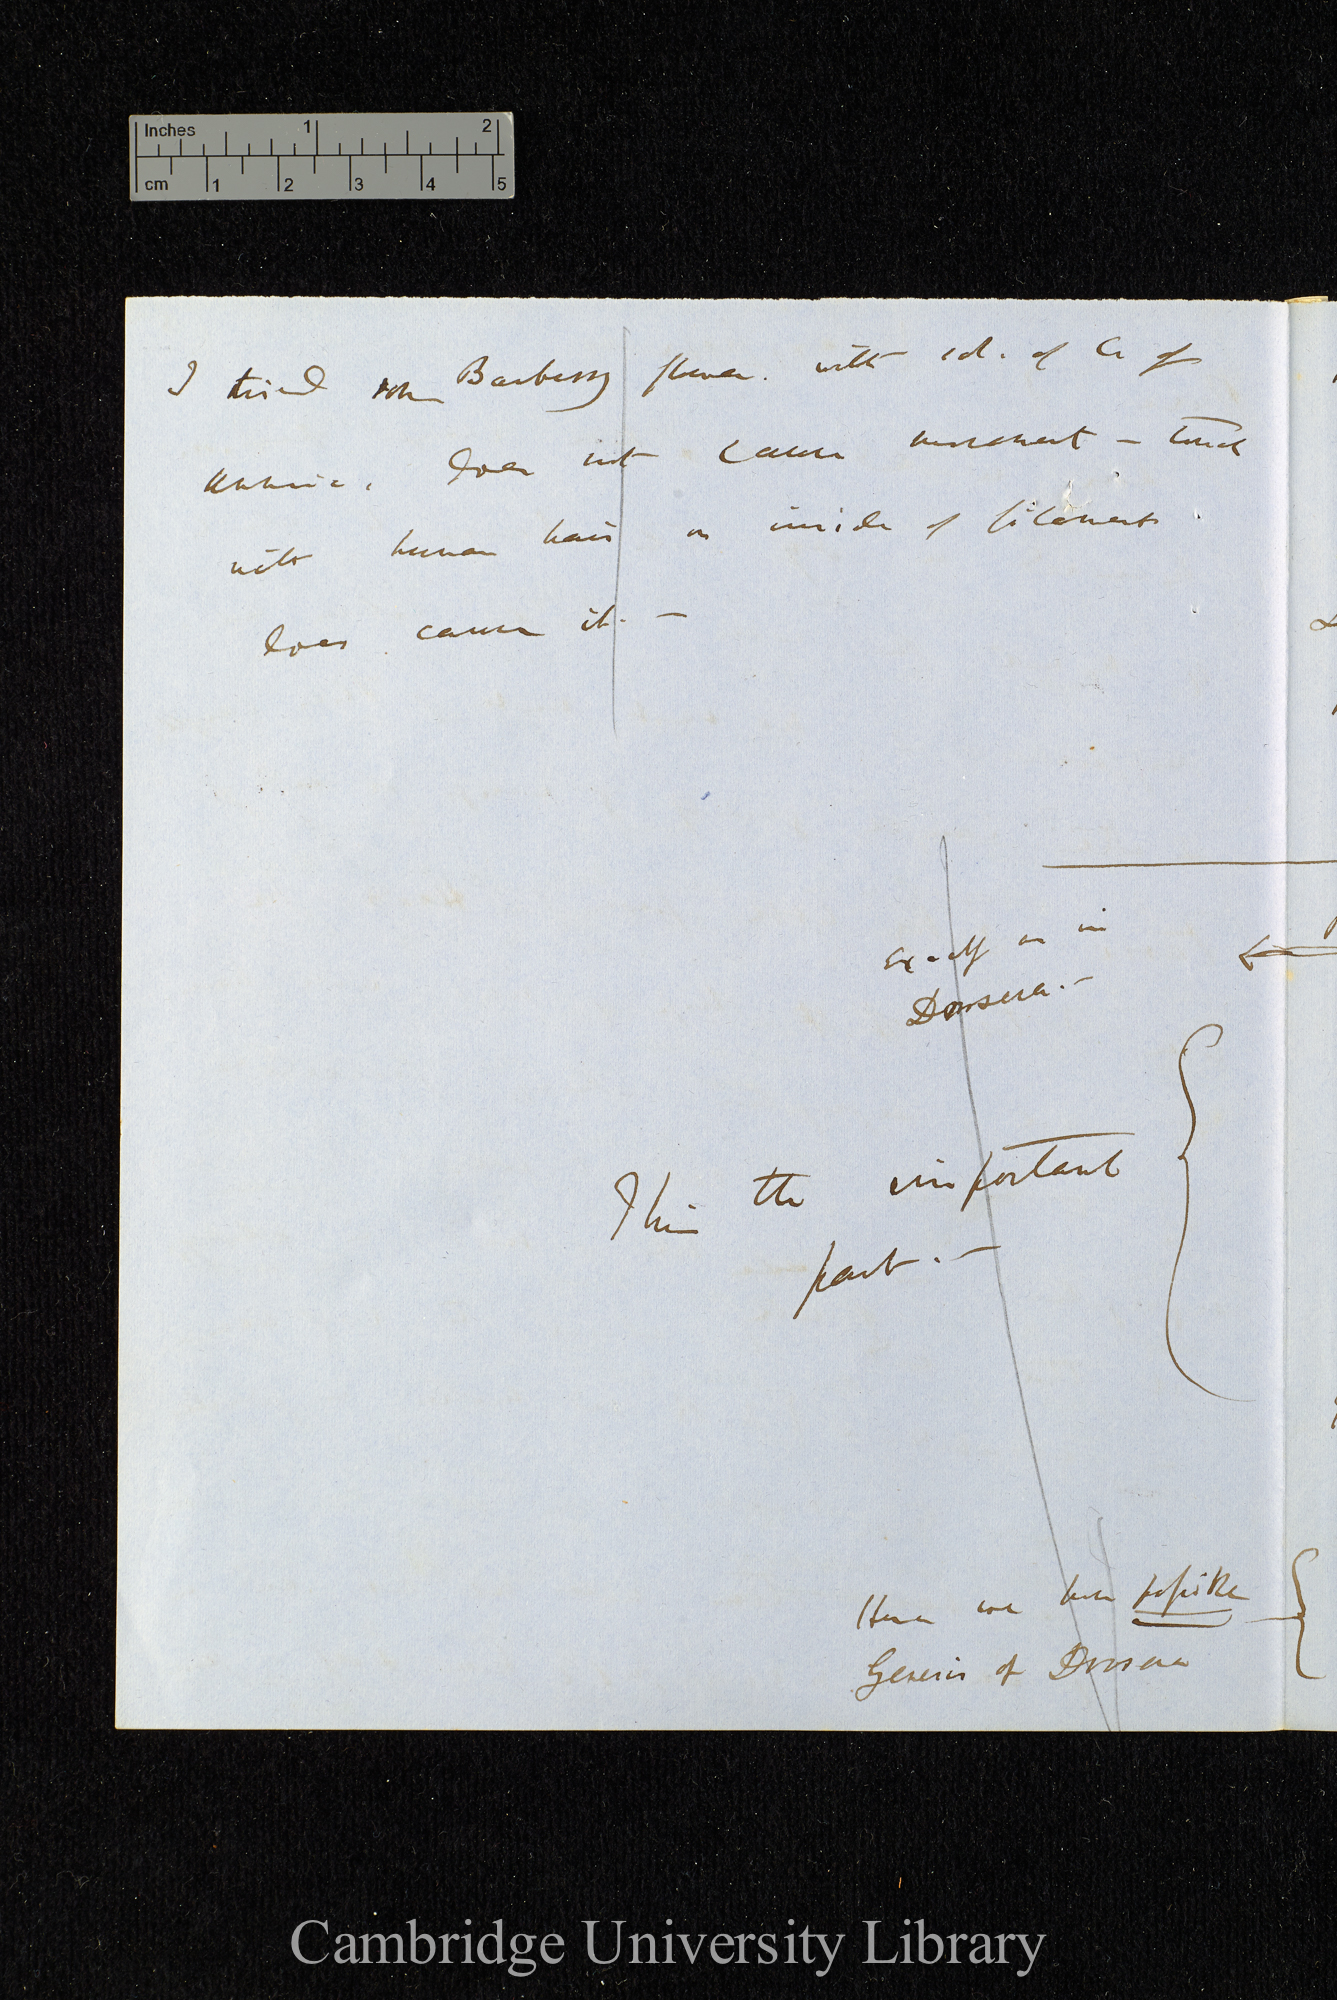 Inches 1 2
cm 1 2 3 4 5
I tried some Barberry flower. with sol. of C. of
Ammonia. does not cause movement — touch
with human hair on inside of filaments
does cause it. —
Exactly as in
Drosera. —
This the important
part. —
Here we have
Genesis of Drosera
Cambridge University Library